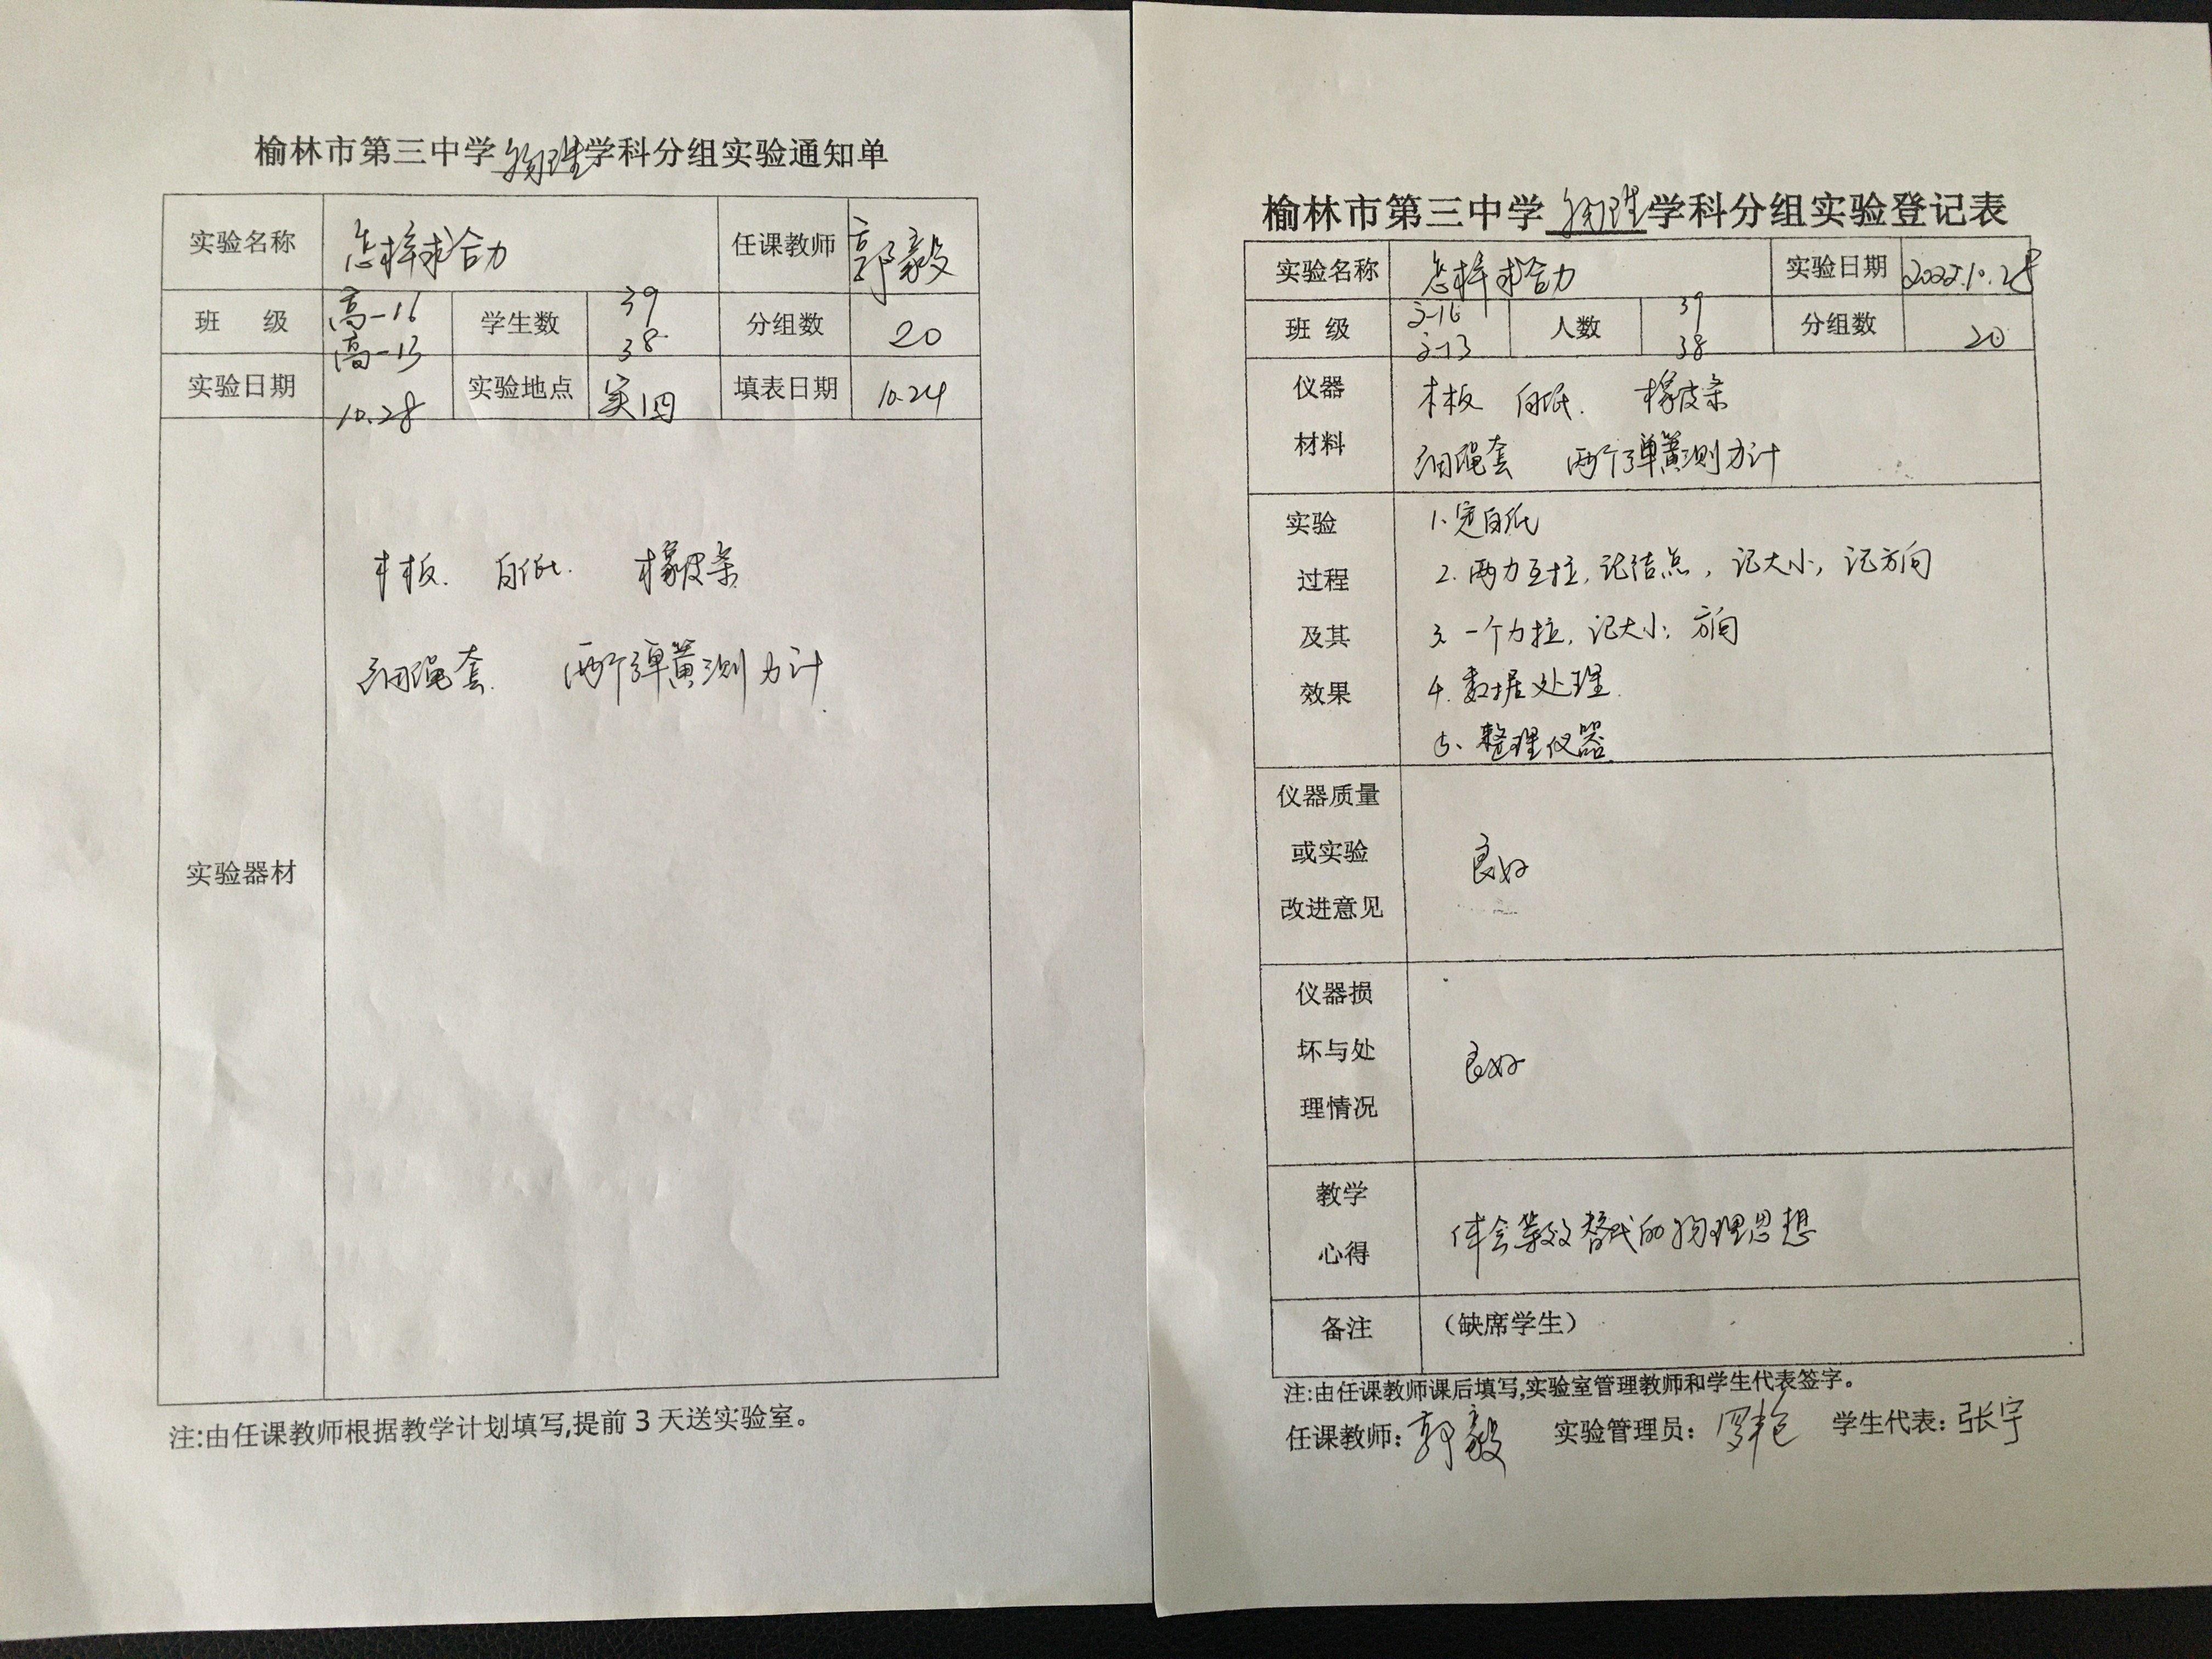 榆林市第三中学物理学科分组实验通知单
实验名称 怎样求合力 任课教师 郭毅
班 级 高一16 学生数 39 分组数 20
高一13 38
实验日期 10.28 实验地点 实四 填表日期 10.24
木板. 白纸. 橡皮条
细绳套. 两个弹簧测力计.
实验器材
注:由任课教师根据教学计划填写,提前3天送实验室。
榆林市第三中学物理学科分组实验登记表
实验名称 怎样求合力 实验日期 2022.10.28
班 级 人数 39 分组数 20
38
仪器 木板 白纸. 橡皮条
材料 细绳套 两个弹簧测力计
实验 1、定白纸
过程 2. 两力互拉,记结点,记大小,记方向
及其 3. 一个力拉,记大小;方向
效果 4. 数据处理.
5、整理仪器
仪器质量
或实验 良好
改进意见
仪器损
坏与处 良好
理情况
教学
心得 体会等效替代的物理思想
备注 (缺席学生)
注:由任课教师课后填写,实验室管理教师和学生代表签字。
任课教师:郭毅 实验管理员: 学生代表:张宇